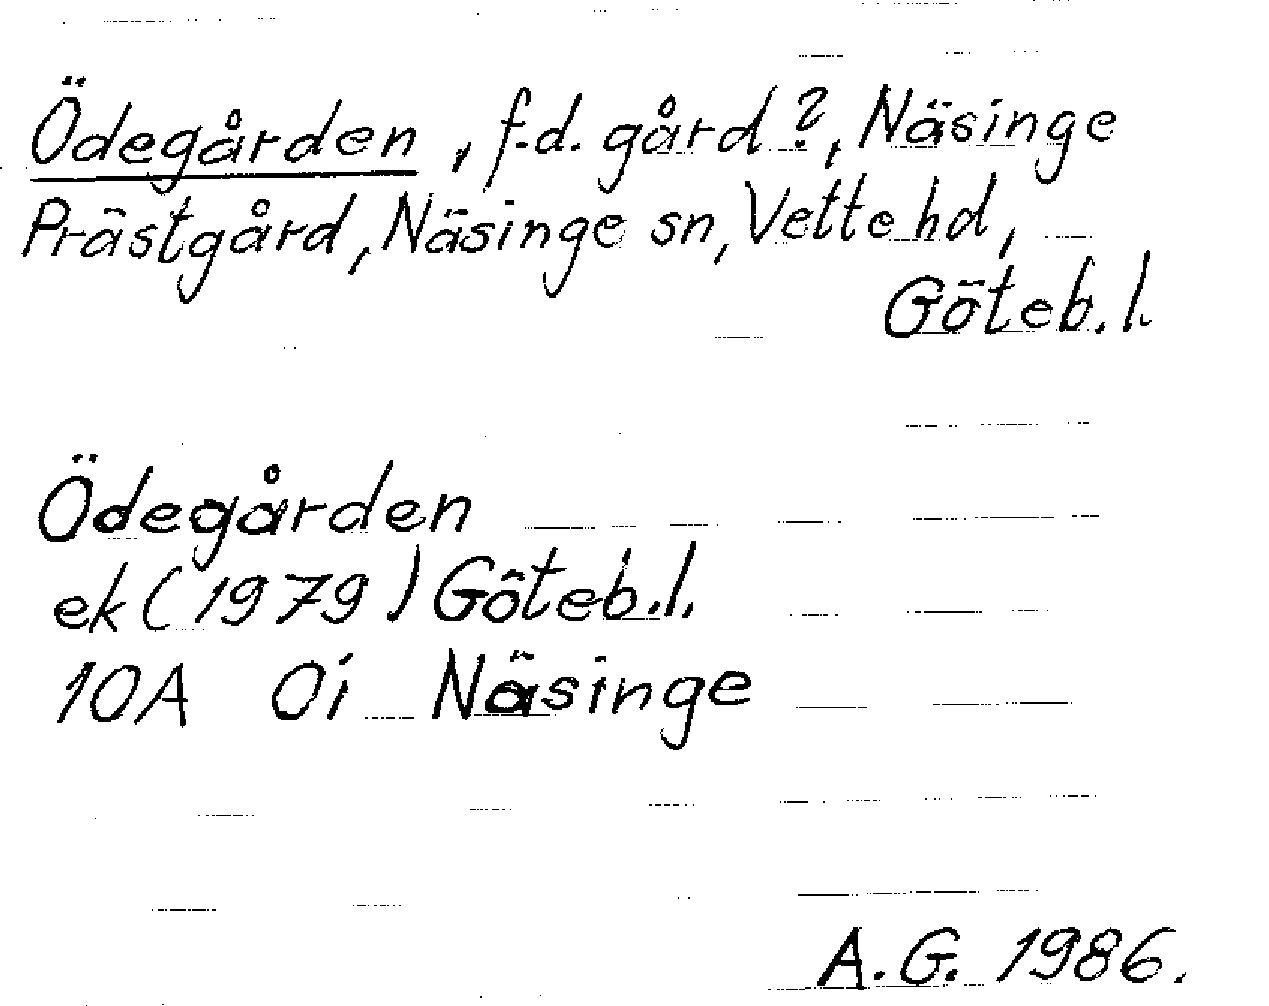 Ödegården, f.d. gård?, Näsinge
Prästgård, Näsinge sn, Vette hd,
Göteb. l.
Ödegården
ek (1979) Göteb. l.
10A 0i Näsinge
A.G. 1986.